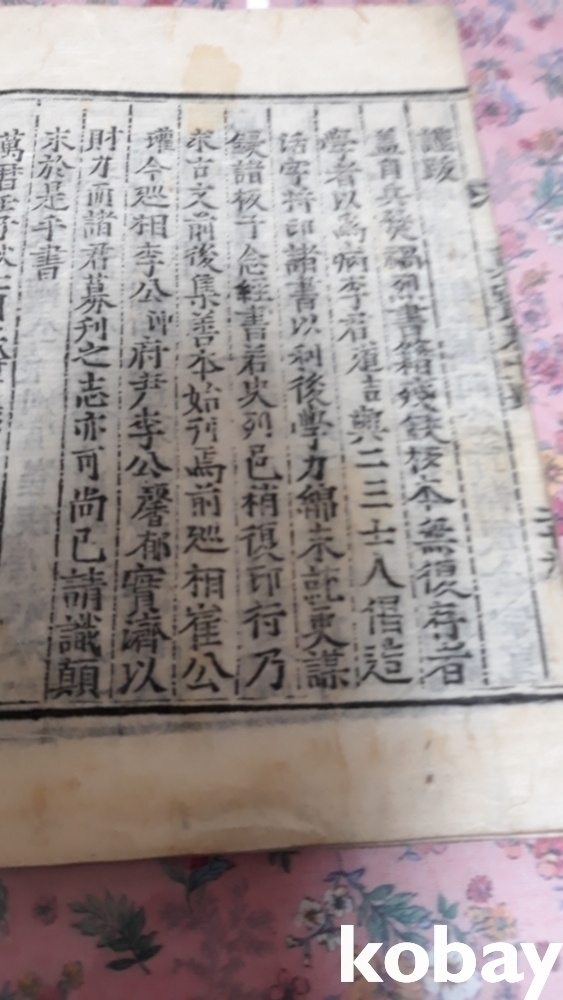 謹跋
盖自兵燹禍烈書籍殘缺板本無復存者
學者以爲病李君道吉與二三士人倡造
活字將印諸書以利後學力綿未訖更謀
鋟諸板于念經書若史列邑稍復印行乃
求古文前後集善本始刊焉前巡相崔公
瓘今巡相李公府尹李公馨郁實濟以
財力而諸君募刊之志亦可尚已請識顛
末於是乎書
萬曆
kobay